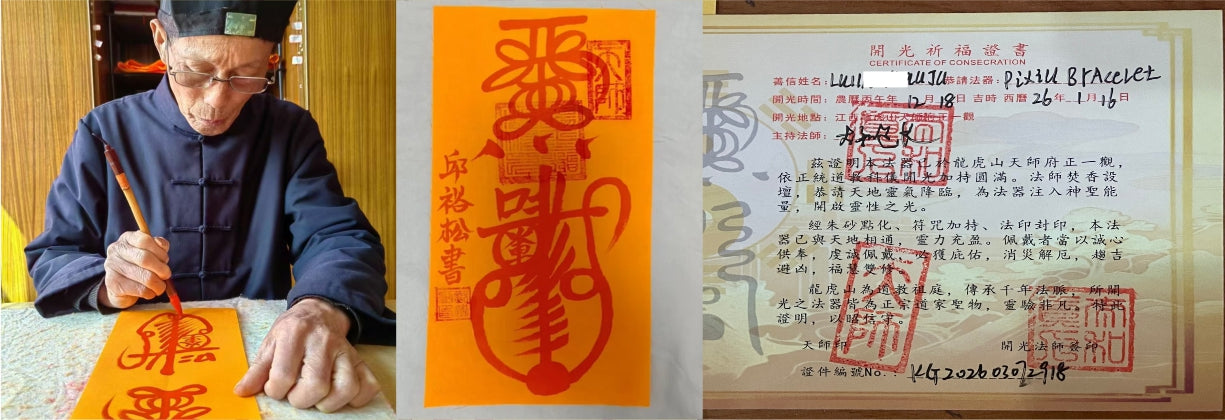 邱裕松書
開光祈福證書
CERTIFICATE OF CONSECRATION
善信姓名: 恭請法器: PiXiU BrAceLet
開光時間: 農曆丙午年 12月 18日 吉時 西曆 26年 1月 16日
開光地點: 江西龍虎山天師府正一觀
主持法師:
茲證明本法器已於龍虎山天師府正一觀,
依正統道教科儀開光加持圓滿。法師焚香設
壇, 恭請天地靈氣降臨, 為法器注入神聖能
量, 開啟靈性之光。
經朱砂點化、符咒加持、法印封印, 本法
器已與天地相通, 靈力充盈。佩戴者當以誠心
供奉, 虔誠佩戴, 必獲庇佑, 消災解厄, 趨吉
避凶, 福慧雙修。
龍虎山為道教祖庭, 傳承千年法脈, 所開
光之法器皆為正宗道家聖物, 靈驗非凡。特此
證明, 以昭信守。
天師印 開光法師簽印
證件編號No.: KG20260302918